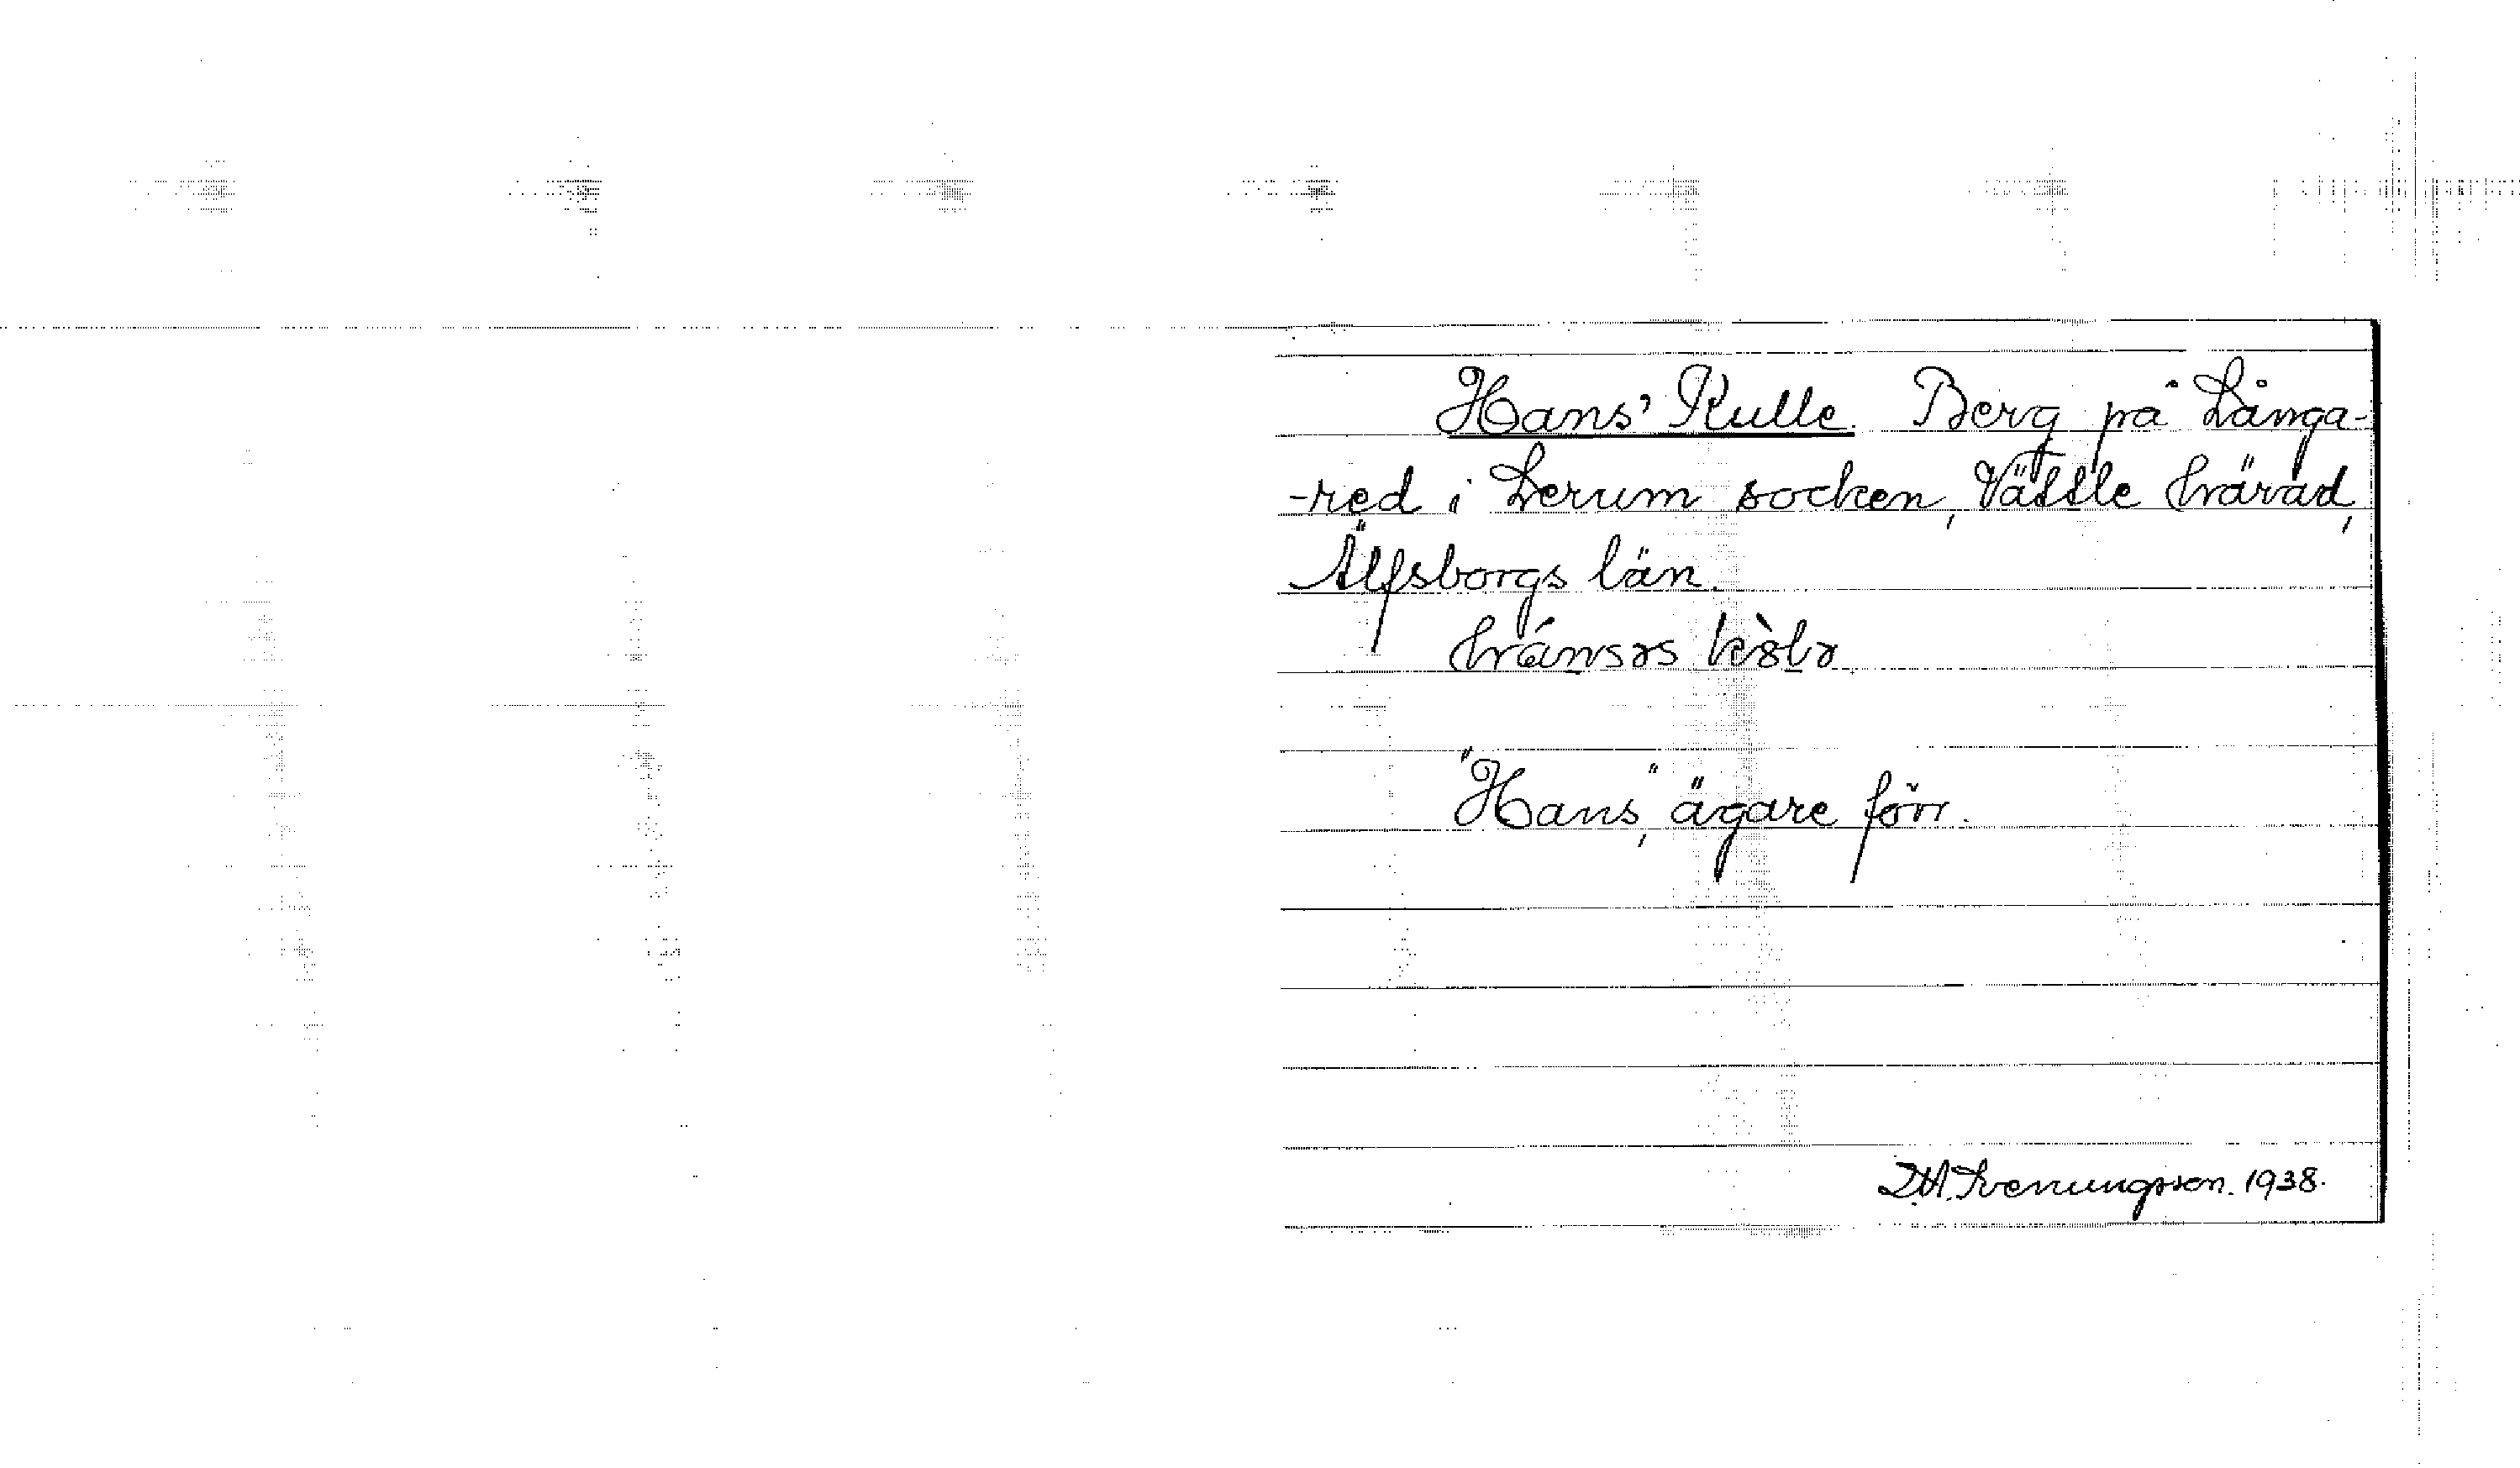 Hans' Kulle. Berg på Långa-
-red i Lerum socken, Vättle härad,
Älfsborgs län.
hánsəs kɵ̀lə
"Hans," ägare förr.
D.A. Svenungsson. 1938.